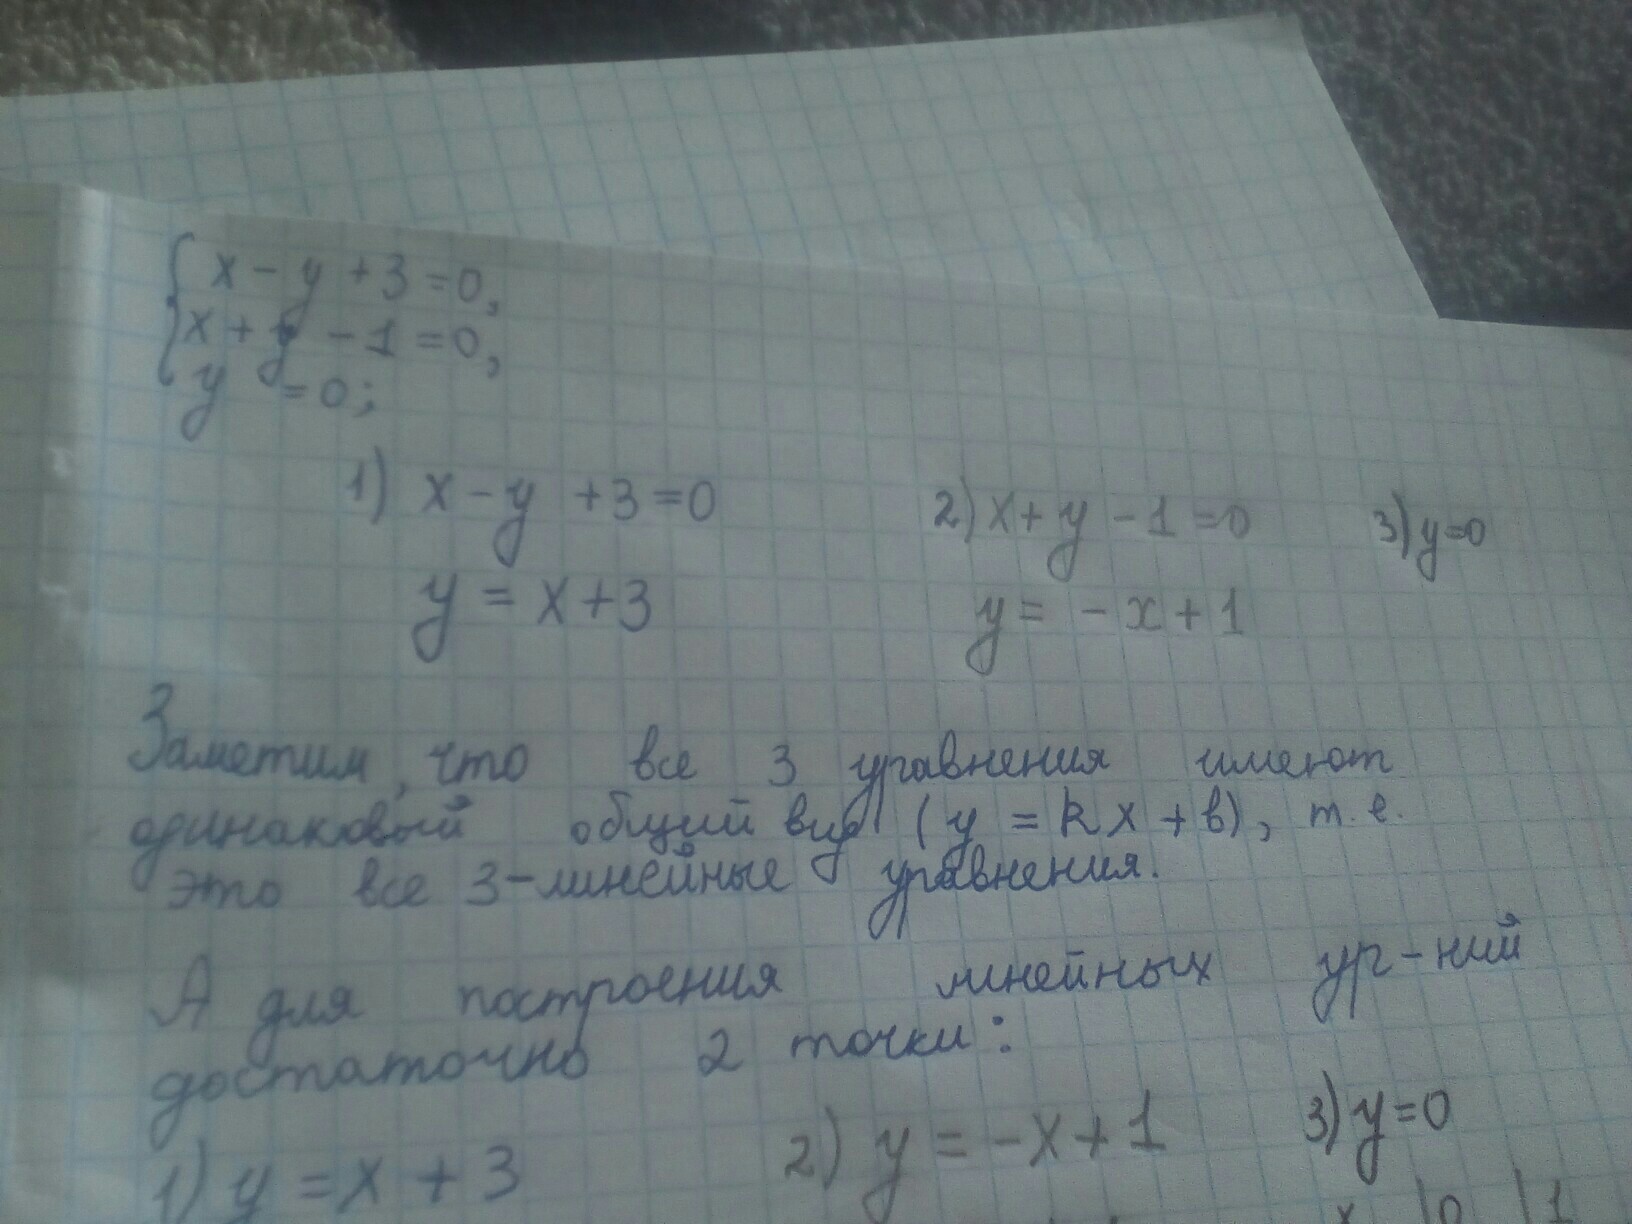 x - y + 3 = 0,
x + y - 1 = 0,
y = 0;
1) x - y + 3 = 0 2) x + y - 1 = 0 3) y = 0
y = x + 3 y = - x + 1
Заметим, что все 3 уравнения имеют
одинаковый общий вид (y = kx + b), т.е.
это все 3 - линейные уравнения.
А для построения линейных ур-ний
достаточно 2 точки:
1) y = x + 3 2) y = -x + 1 3) y = 0
x | 0 | 1